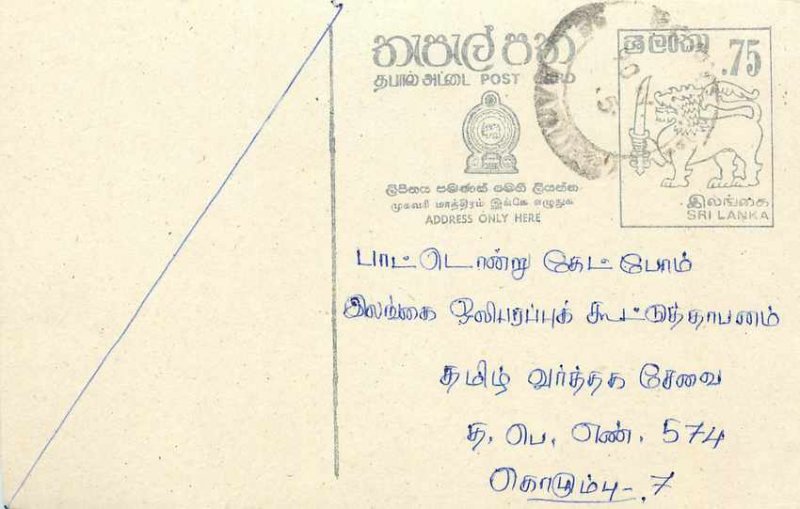 තැපැල් පත
தபால் அட்டை POST
ශ්‍රී ලංකා .75
ලිපිනය පමණක් මෙහි ලියන්න
முகவரி மாத்திரம் இங்கே எழுதுக
ADDRESS ONLY HERE
இலங்கை
SRI LANKA
பாட்டொன்று கேட்போம்
இலங்கை ஒலிபரப்புக் கூட்டுத்தாபனம்
தமிழ் வர்த்தக சேவை
த. பெ. எண். 574
கொழும்பு - 7